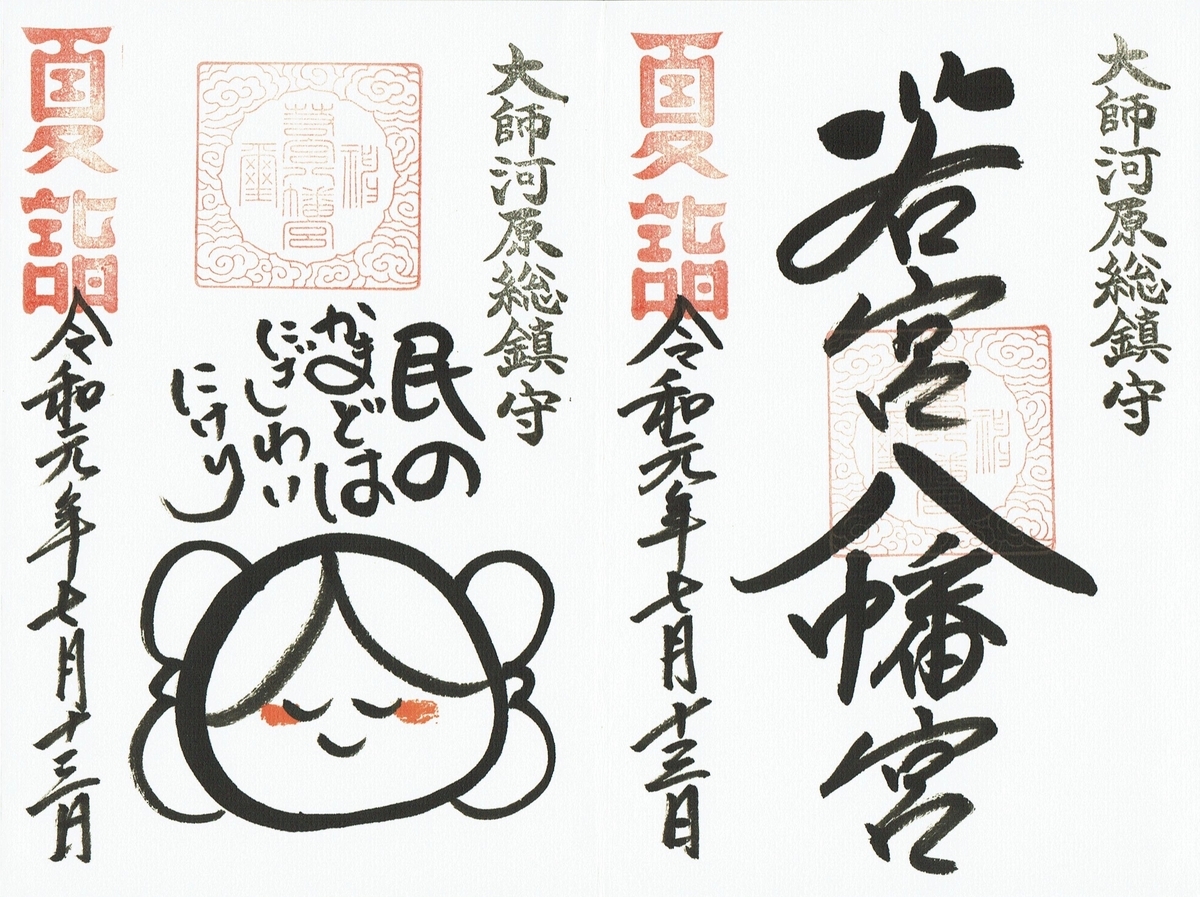 大師河原総鎮守
若宮八幡宮
夏詣
令和元年七月十三日
大師河原総鎮守
民の
かまどは
にぎわい
にけり
夏詣
令和元年七月十三日